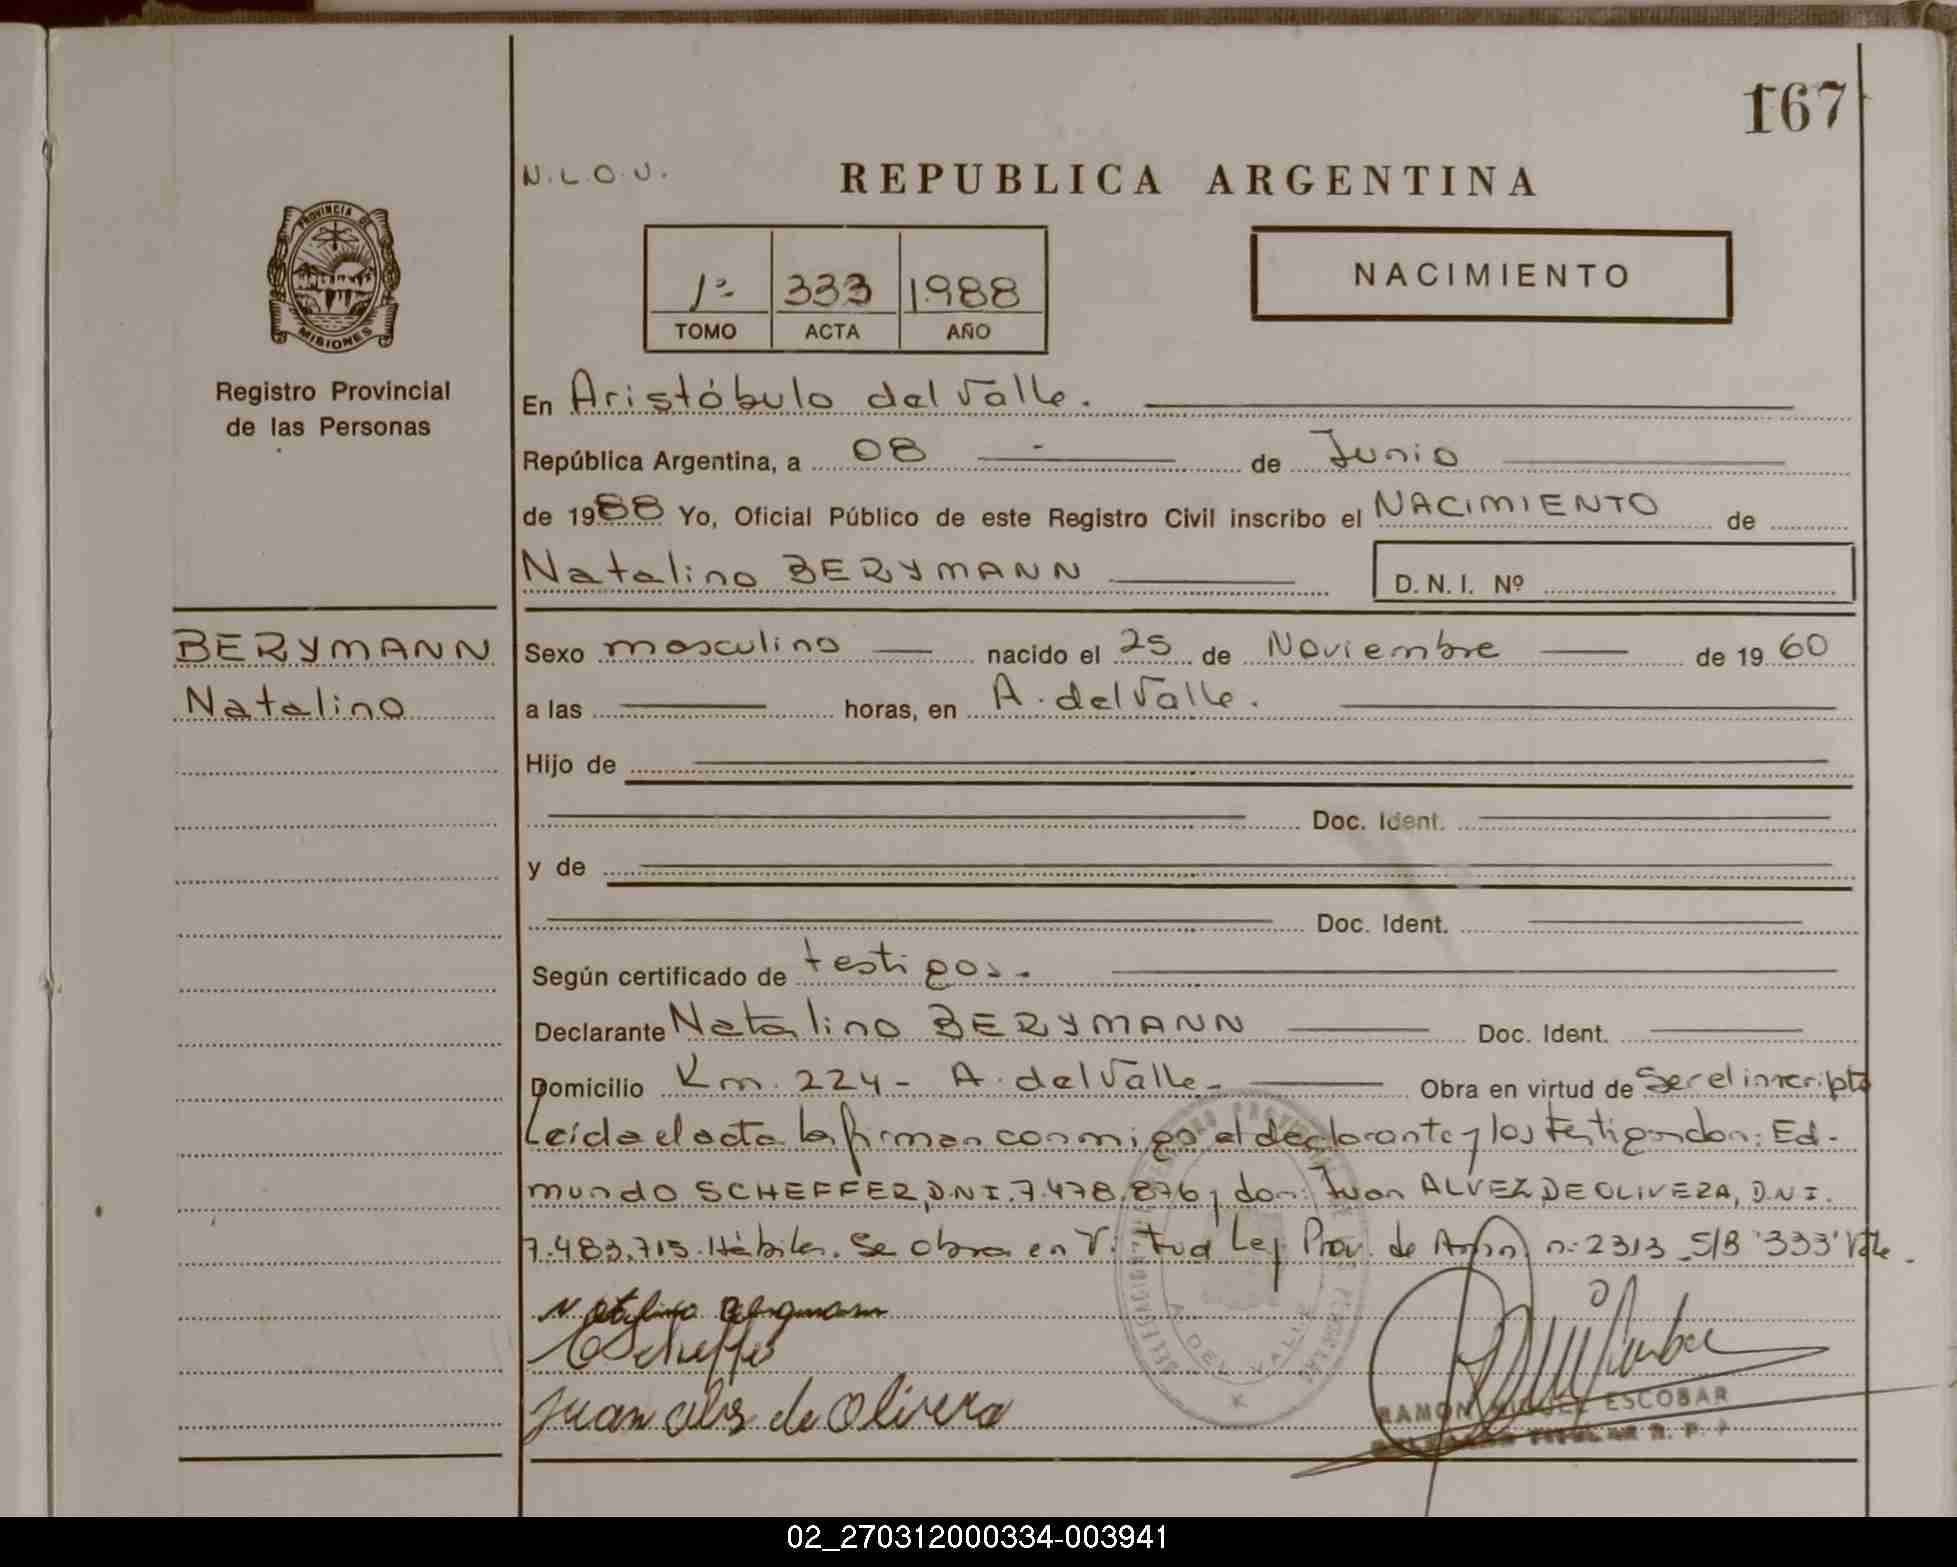 167
N.L.O.V.
REPUBLICA ARGENTINA
PROVINCIA DE
MISIONES
Registro Provincial
de las Personas
1º 333 1988
TOMO ACTA AÑO
NACIMIENTO
En Aristóbulo del Valle.
República Argentina, a 08 de Junio
de 1988 Yo, Oficial Público de este Registro Civil inscribo el NACIMIENTO de
Natalino BERYMANN D.N.I. Nº
BERYMANN
Natalino
Sexo masculino nacido el 25 de Noviembre de 1960
a las horas, en A. del Valle.
Hijo de
Doc. Ident.
y de
Doc. Ident.
Según certificado de testigos.
Declarante Natalino BERYMANN Doc. Ident.
Domicilio Km. 224 - A. del Valle - Obra en virtud de Ser el inscripto
Leída el acta la firman conmigo el declarante y los testigos don: Ed-
mundo SCHEFFER, D.N.I. 7.478.876 y don: Juan ALVEZ DE OLIVERA, D.N.I.
7.483.715. Hábiles. Se obra en Virtud Ley Prov. de Amn. n: 2313. S/B "333" Vale.
Natalino Bergmann
EScheffer
Juan alvs de Olivera
A. DEL VALLE
RAMON MIGUEL ESCOBAR
02_270312000334-003941